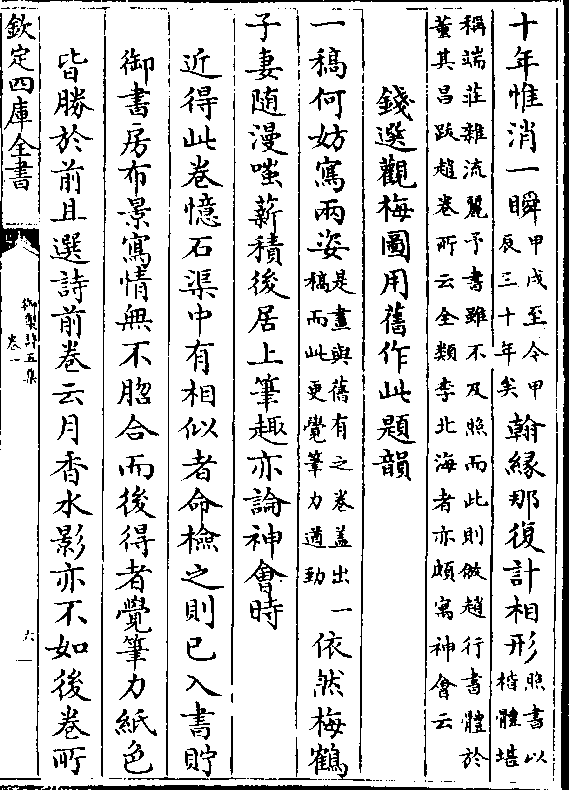 十年惟消一瞬甲戌至今甲辰三十年矣翰緣那復計相形照書以楷體堪
稱端莊雜流麗予書雖不及照而此則倣趙行書體於
董其昌跋趙卷所云全類李北海者亦頗寓神會云
錢選觀梅圖用舊作此題韻
一稿何妨寫兩姿是畫與舊有之卷蓋出一稿而此更覺筆力遒勁依然梅鶴
子妻随漫嗤薪積後居上筆趣亦論神會時
近得此卷憶石渠中有相似者命檢之則已入書貯
御書房布景寫情無不脗合而後得者覺筆力紙色
皆勝於前且選詩前卷云月香水影亦不如後卷所
欽定四庫全書
御製詩五集
卷一
六